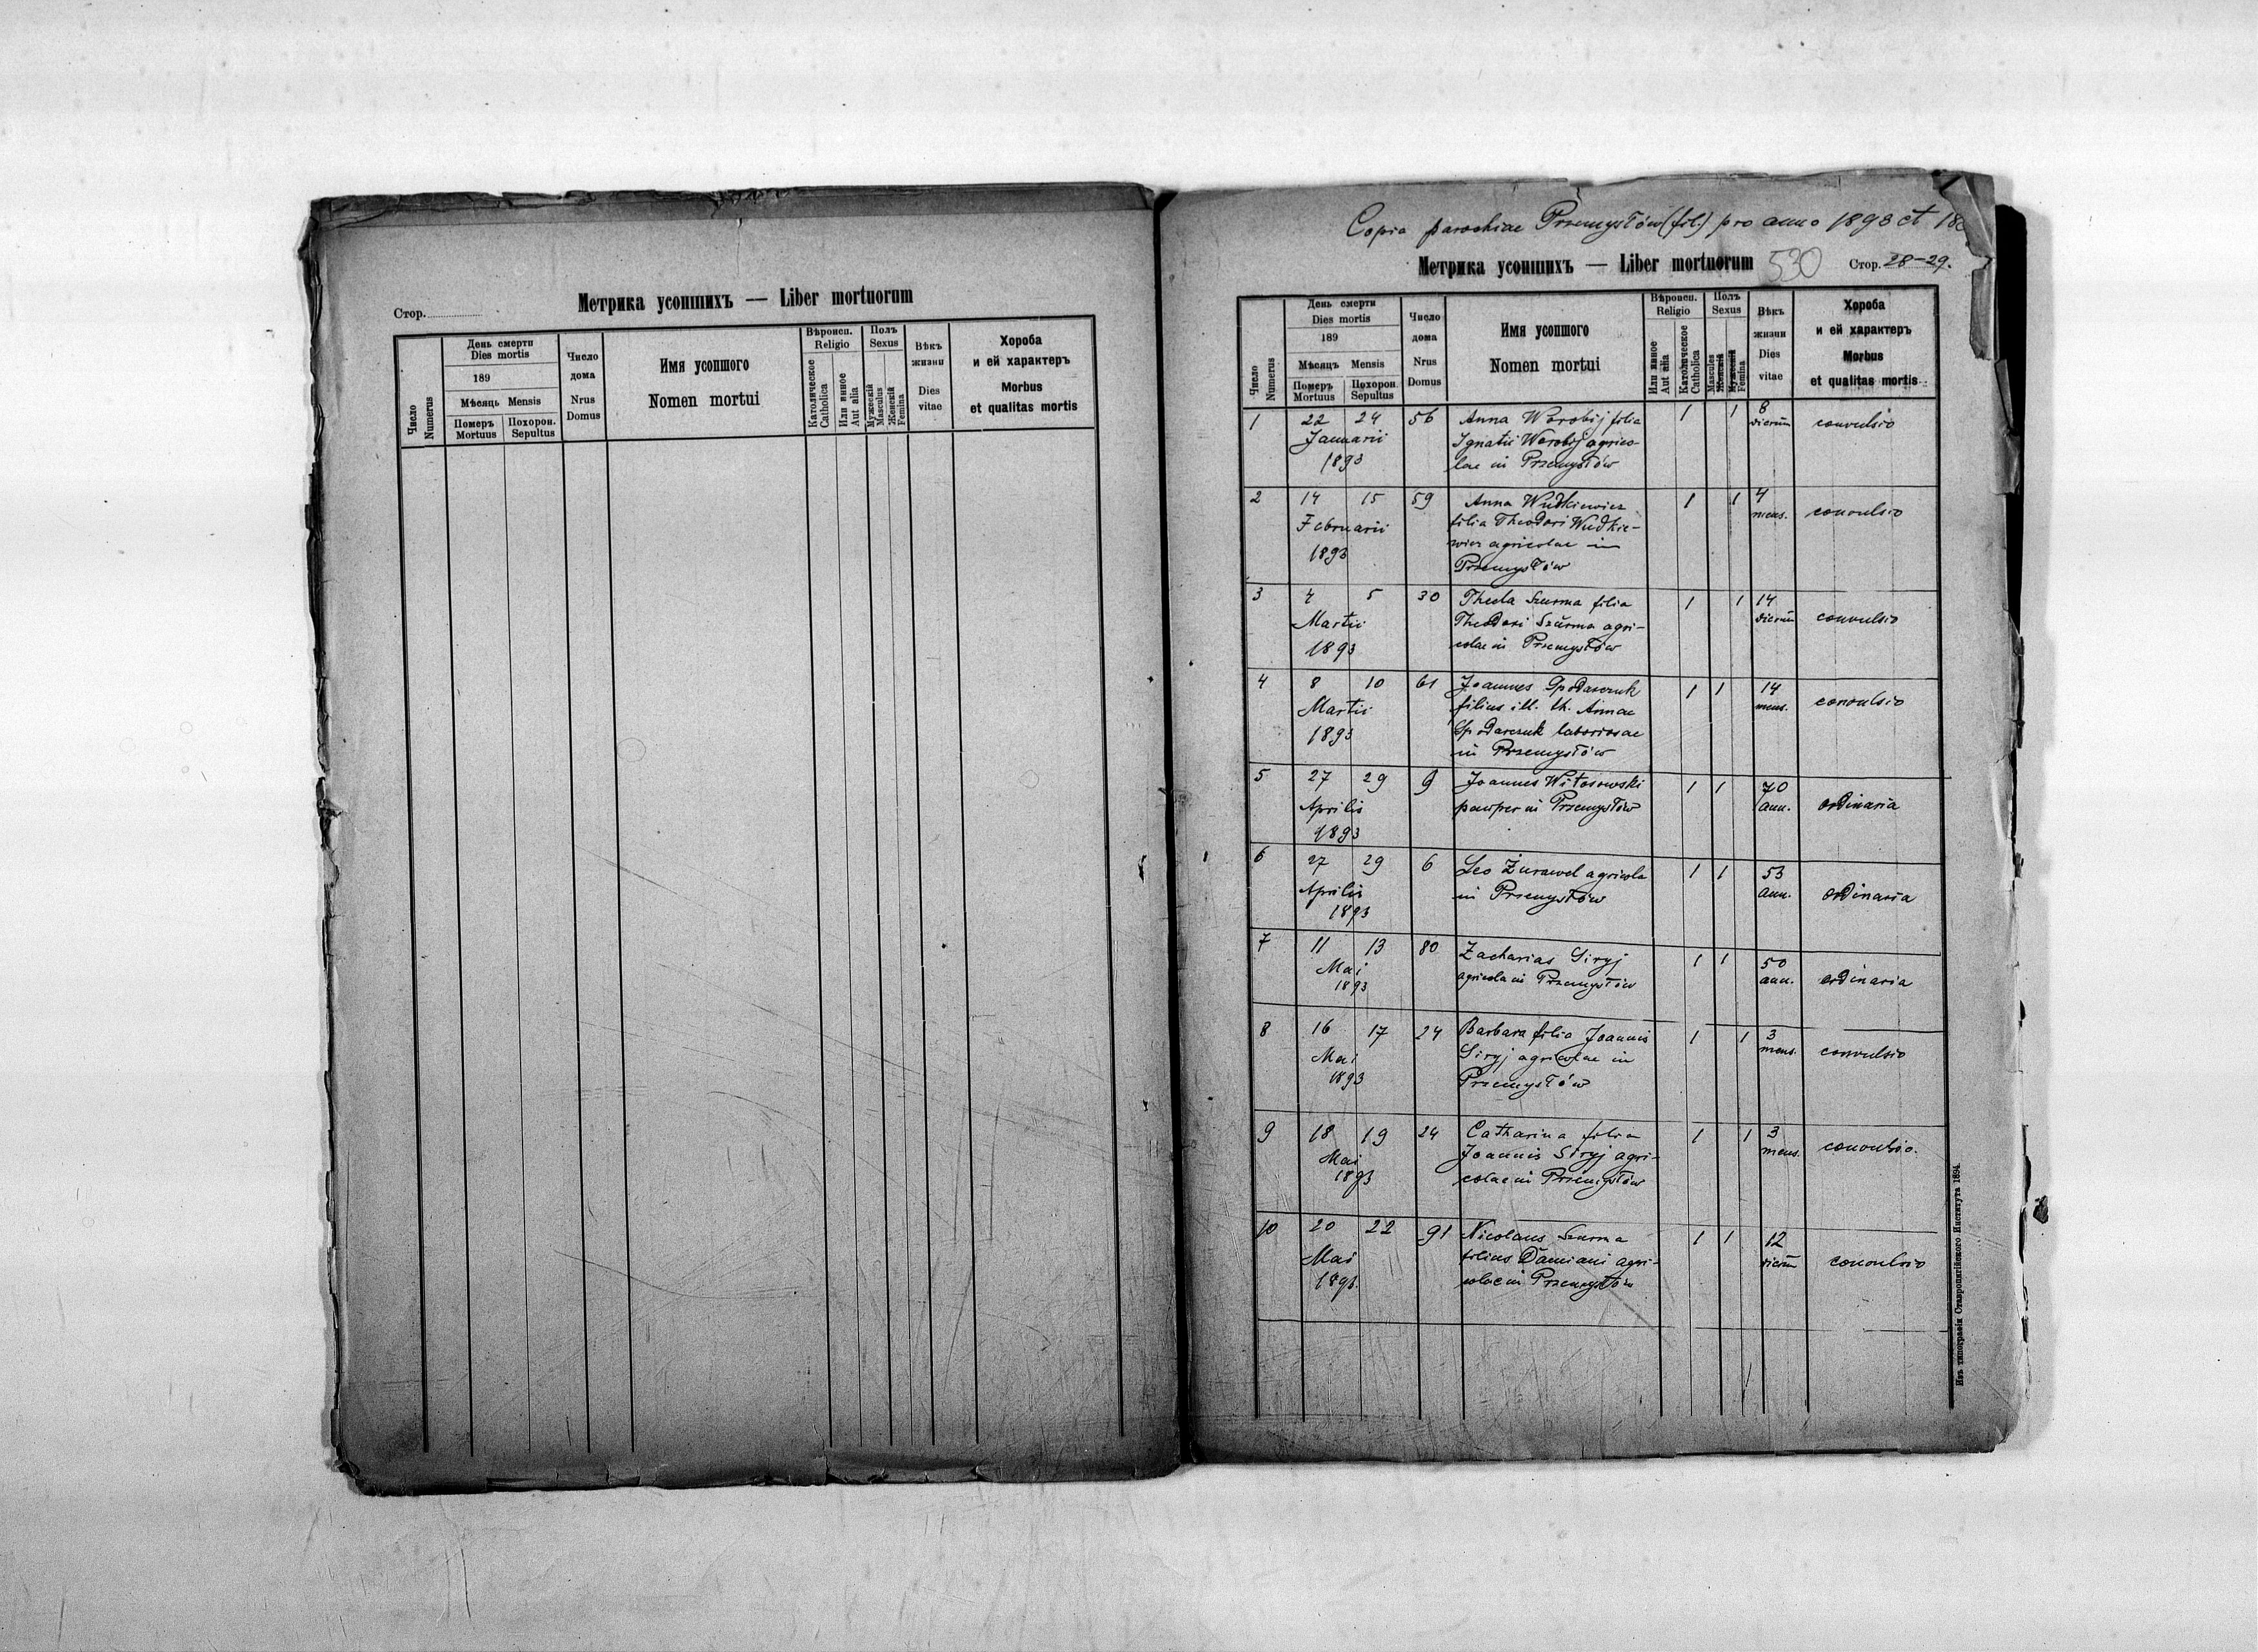 Стор.
Метрика усопшихъ — Liber mortuorum
Число Numerus
День смерти
Dies mortis
189
Мѣсяць Mensis
Померъ Mortuus
Похорон. Sepultus
Число дома
Nrus Domus
Имя усопшого
Nomen mortui
Вѣроисп. Religio
Католическое Catholica
Или инное Aut alia
Полъ Sexus
Мужескій Masculus
Женскій Femina
Вѣкъ жизни
Dies vitae
Хороба
и ей характеръ
Morbus
et qualitas mortis
Copia parochiae Przemysłów (fil.) pro anno 1893 et
Метрика усопшихъ — Liber mortuorum 530 Стор. 28-29.
Число Numerus
День смерти
Dies mortis
189
Мѣсяць Mensis
Померъ Mortuus
Похорон. Sepultus
Число дома
Nrus Domus
Имя усопшого
Nomen mortui
Вѣроисп. Religio
Или инное Aut alia
Католическое Catholica
Полъ Sexus
Masculus Женскій
Мужескій Femina
Вѣкъ жизни
Dies vitae
Хороба
и ей характеръ
Morbus
et qualitas mortis
1 22 24 56 Anna Worobij filia 1 1 8 dierum convulsio
Januarii Ignatii Worobij agrico-
1893 lae in Przemysłów
2 14 15 59 Anna Wudkiewicz 1 1 4 mens. convulsio
Februarii filia Theodori Wudkie-
1893 wicz agricolae in
Przemysłów
3 4 5 30 Thecla Szurma filia 1 1 14 dierum convulsio
Martii Theodori Szurma agri-
1893 colae in Przemysłów
4 8 10 61 Joannes Spodarczuk 1 1 14 mens. convulsio
Martii filius ill. th. Annae
1893 Spodarczuk laboriosae
in Przemysłów
5 27 29 9 Joannes Witosowski 1 1 70 ann. ordinaria
Aprilis pauper in Przemysłów
1893
6 27 29 6 Leo Żurawel agricola 1 1 53 ann. ordinaria
Aprilis in Przemysłów
1893
7 11 13 80 Zacharias Siryj 1 1 50 ann. ordinaria
Mai agricola in Przemysłów
1893
8 16 17 24 Barbara filia Joannis 1 1 3 mens. convulsio
Mai Siryj agricolae in
1893 Przemysłów
9 18 19 24 Catharina filia 1 1 3 mens. convulsio.
Mai Joannis Siryj agri-
1893 colae in Przemysłów
10 20 22 91 Nicolaus Szurma 1 1 12 dierum convulsio
Mai filius Damiani agri-
1893. colae in Przemysłów
Изъ типографіи Ставропигійского Института 1894.